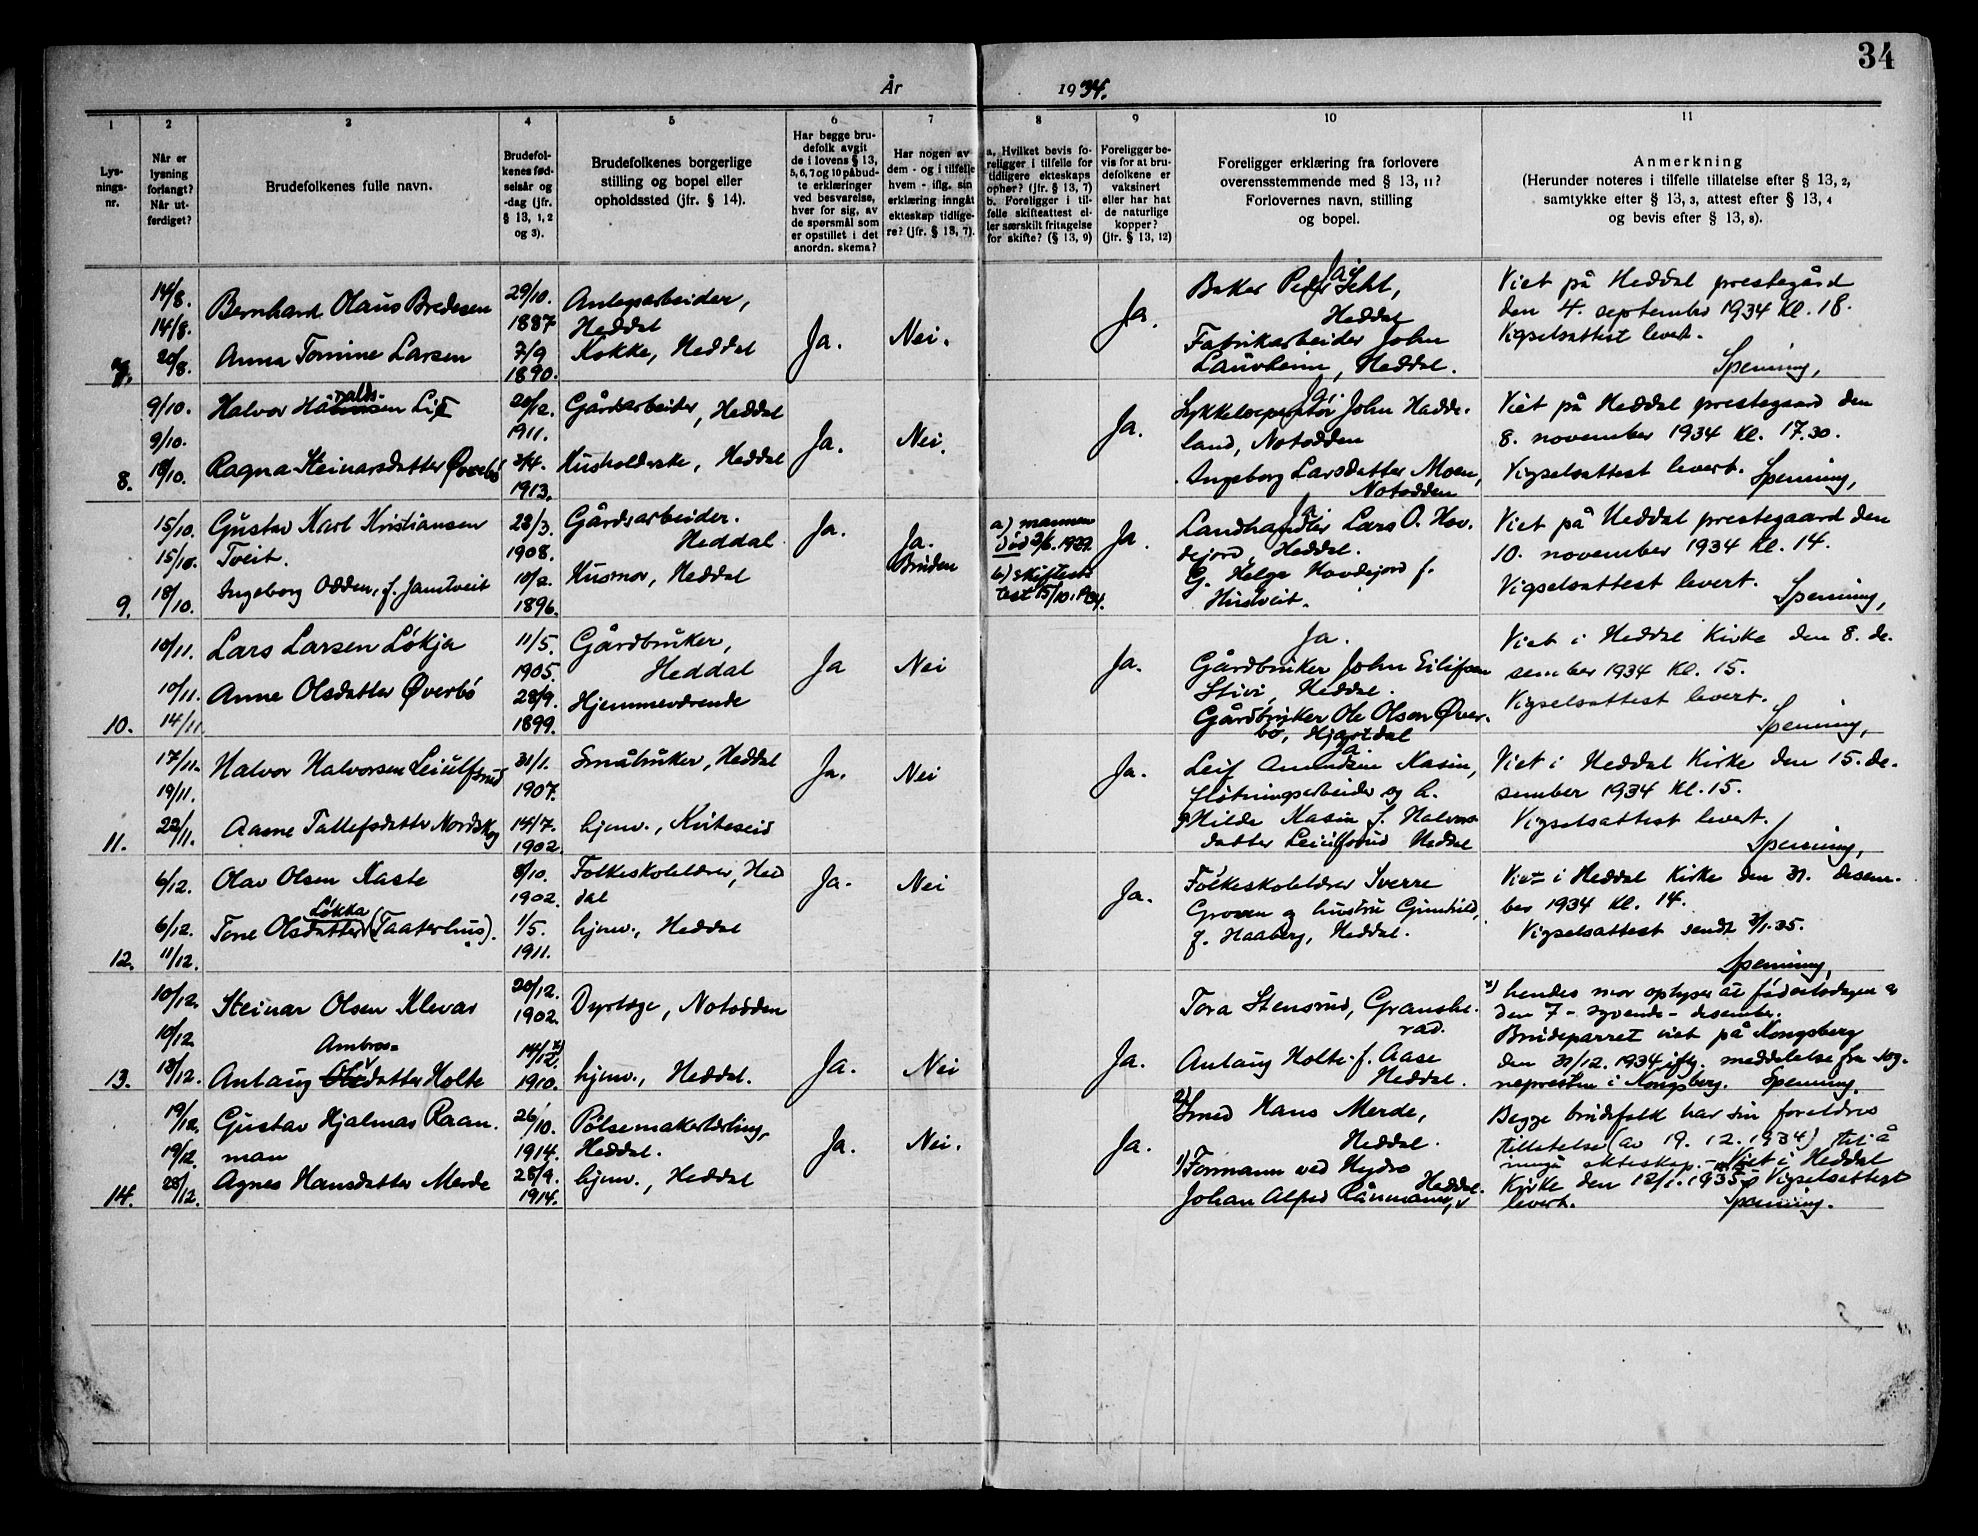 34
År 1934.
1 2 3 4 5 6 7 8 9 10 11
Lys-
nings-
nr.
Når er
lysning
forlangt?
Når ut-
ferdiget?
Brudefolkenes fulle navn.
Brudefol-
kenes fød-
selsår og
-dag (jfr.
§ 13, 1, 2
og 3).
Brudefolkenes borgerlige
stilling og bopel eller
opholdssted (jfr. § 14).
Har begge bru-
defolk avgit
de i lovens § 13,
5, 6, 7 og 10 påbud-
te erklæringer
ved besvarelse,
hver for sig, av
de spørsmål som
er opstillet i det
anordn. skema?
Har nogen av
dem - og i tilfelle
hvem - iflg. sin
erklæring inngåt
ekteskap tidlige-
re? (jfr. § 13, 7).
a. Hvilket bevis fo-
religger i tilfelle for
tidligere ekteskaps
ophør? (jfr. § 13, 7)
b. Foreligger i til-
felle skifteattest el-
ler særskilt fritagelse
for skifte? (§ 13, 9)
Foreligger be-
vis for at bru-
defolkene er
vaksinert
eller har hat
de naturlige
kopper?
(jfr. § 13, 12)
Foreligger erklæring fra forlovere
overensstemmende med § 13, 11?
Forlovernes navn, stilling
og bopel.
Anmerkning
(Herunder noteres i tilfelle tillatelse efter § 13, 2,
samtykke efter § 13, 3, attest efter § 13, 4
og bevis efter § 13, 8).
7.
14/8.
14/8.
20/8.
Bernhard Olaus Bredesen
Anna Tomine Larsen
29/10.
1887
7/9
1890.
Anlegsarbeider,
Heddal
Kokke, Heddal
Ja.
Nei.
Ja.
Ja.
Baker Peder
Heddal
Fabrikarbeider John
Lauvheim, Heddal.
Viet på Heddal prestegård
den 4. september 1934 Kl. 18.
Vigselsattest levert.
Spenning,
8.
9/10.
9/10.
18/10.
Halvor Halvorsen Li
Ragna Steinarsdatter Øverbö
20/12.
1911.
3/4.
1913.
Gårdsarbeider, Heddal
Husholderske, Heddal
Ja.
Nei.
Ja.
Ja.
John Hadde-
land, Notodden
Ingeborg Larsdatter Moen,
Notodden
Viet på Heddal prestegaard den
8. november 1934 Kl. 17.30.
Vigselsattest levert. Spenning,
9.
15/10.
15/10.
18/10.
Gustav Karl Kristiansen
Tveit.
Ingeborg Odden, f. Jamtveit
23/3.
1908.
10/2.
1896.
Gårdsarbeider.
Heddal
Husmor, Heddal
Ja.
Ja.
Bruden
a) mannen
död 3/6.1929.
b) skifteat-
test 15/10.1934.
Ja.
Ja.
Landhandler Lars O. Hov-
dejord, Heddal.
G. Helga Hovdejord f.
Hustveit.
Viet på Heddal prestegaard den
10. november 1934 Kl. 14.
Vigselsattest levert.
Spenning,
10.
10/11.
10/11.
14/11.
Lars Larsen Løkja
Anne Olsdatter Øverbö
11/5.
1905.
28/9.
1899.
Gårdbruker,
Heddal
Hjemmeværende
Ja
Nei
Ja.
Ja.
Gårdbruker John Eilifsen
Stivi, Heddal.
Gårdbruker Ole Olsen Øver-
bö, Hjartdal
Viet i Heddal Kirke den 8. de-
sember 1934 Kl. 15.
Vigselsattest levert.
Spenning,
11.
17/11.
19/11.
22/11.
Halvor Halvorsen Leiulfsrud
Aasne Tallefsdatter Nordskog
31/1.
1907.
14/7.
1902.
Småbruker, Heddal
hjemv., Kviteseid
Ja.
Nei
Ja.
Ja.
Leif Amundsen Kasin,
flötningsarbeider og h.
Hilde Kasin f. Halvors-
datter Leiulfsrud Heddal
Viet i Heddal Kirke den 15. de-
sember 1934 Kl. 15.
Vigselsattest levert.
Spenning,
12.
6/12.
6/12.
11/12.
Olav Olsen Kaste
Løkka
Tone Olsdatter (Taaterhus).
8/10.
1902.
1/5.
1911.
Folkeskolelærer, Hed
dal
hjemv., Heddal
Ja.
Nei
Ja.
Folkeskolelærer Sverre
Groven og hustru Gunhild,
f. Haaberg, Heddal.
Viet i Heddal Kirke den 31. desem-
ber 1934 Kl. 14.
Vigselsattest sendt 2/1.35.
Spenning,
13.
10/12.
10/12.
13/12.
Steinar Olsen Klevar
Ambros-
Anlaug Olsdatter Holte
20/12.
1902.
14/12.
1910.
Dyrlæge, Notodden
hjemv., Heddal.
Ja.
Nei
Ja.
Tora Stensrud, Granshe-
rad.
Anlaug Holte f. Aase
Heddal.
hendes mor oplyser at fødselsdagen er
den 7 - syvende - desember.
Brudeparret viet på Kongsberg
den 31/12. 1934 iflg. meddelelse fra sog-
nepresten i Kongsberg. Spenning.
14.
19/12.
19/12.
28/12.
Gustav Hjalmar Raan-
man
Agnes Hansdatter Merde
26/10.
1914.
28/9.
1914.
Pølsemakerlærling,
Heddal.
hjemv., Heddal
Ja.
Nei.
Ja.
2) Smed Hans Merde,
Heddal.
1) Formann ved Hydro
Heddal.
Johan Alfred Rånmann,
Begge brudefolk har sin foreldres
tillatelse (av 19. 12. 1934) til å
inngå ekteskap. - Viet i Heddal
Kirke den 12/1. 1935. Vigselsattest
levert. Spenning.